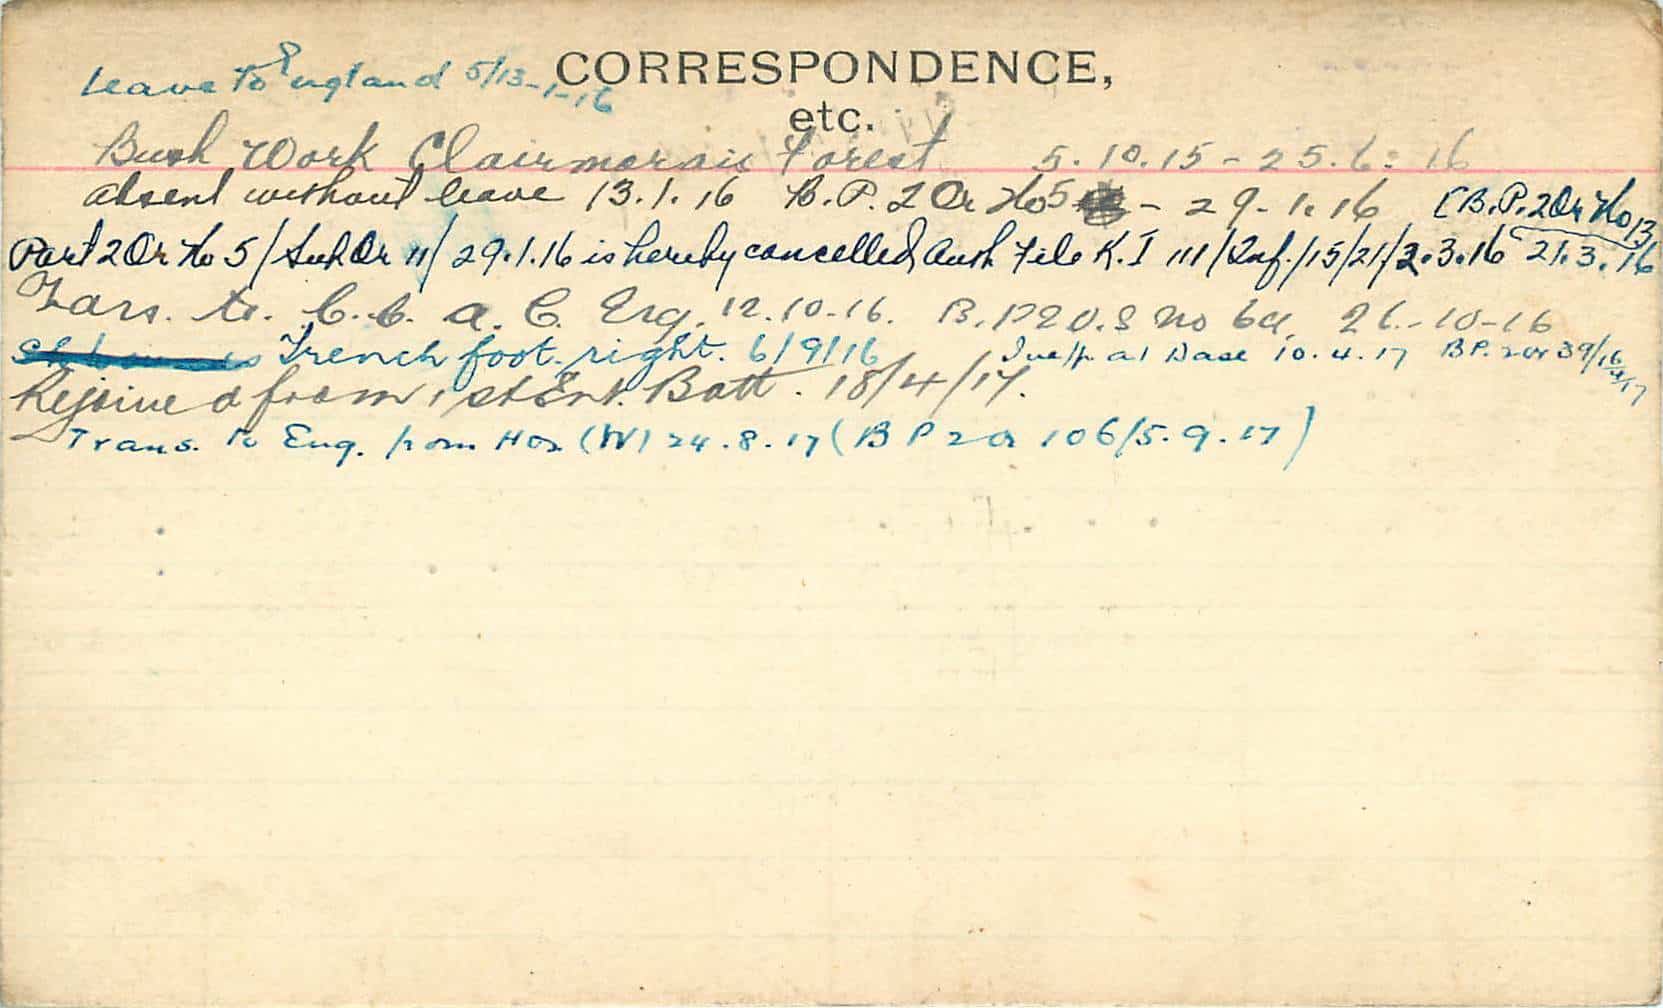 CORRESPONDENCE,
etc.
Leave to England 5/13-1-16
Bush Work Clairmarais Forest 5.10.15 - 25.6.16
absent without leave 13.1.16 B.P. 2 Or No 5 - 29.1.16 (B.P. 2 Or No 13
Part 2 Or No 5/Sub Or 11/29.1.16 is hereby cancelled Auth File K.I 111/Inf./15/21/2.3.16 21.3.16
Trans. to. C.C.A.C. Eng. 12.10-16. B.P 2 O.S No 61 26-10-16
Trench foot right. 6/9/16 Inef/p at Base 10.4.17 BP. 2 or 39/16/4/17
Rejoined from 1st Ent. Batt. 18/4/17.
Trans. to Eng. from Hos (W) 24.8.17 (B P 2 or 106/5.9.17)